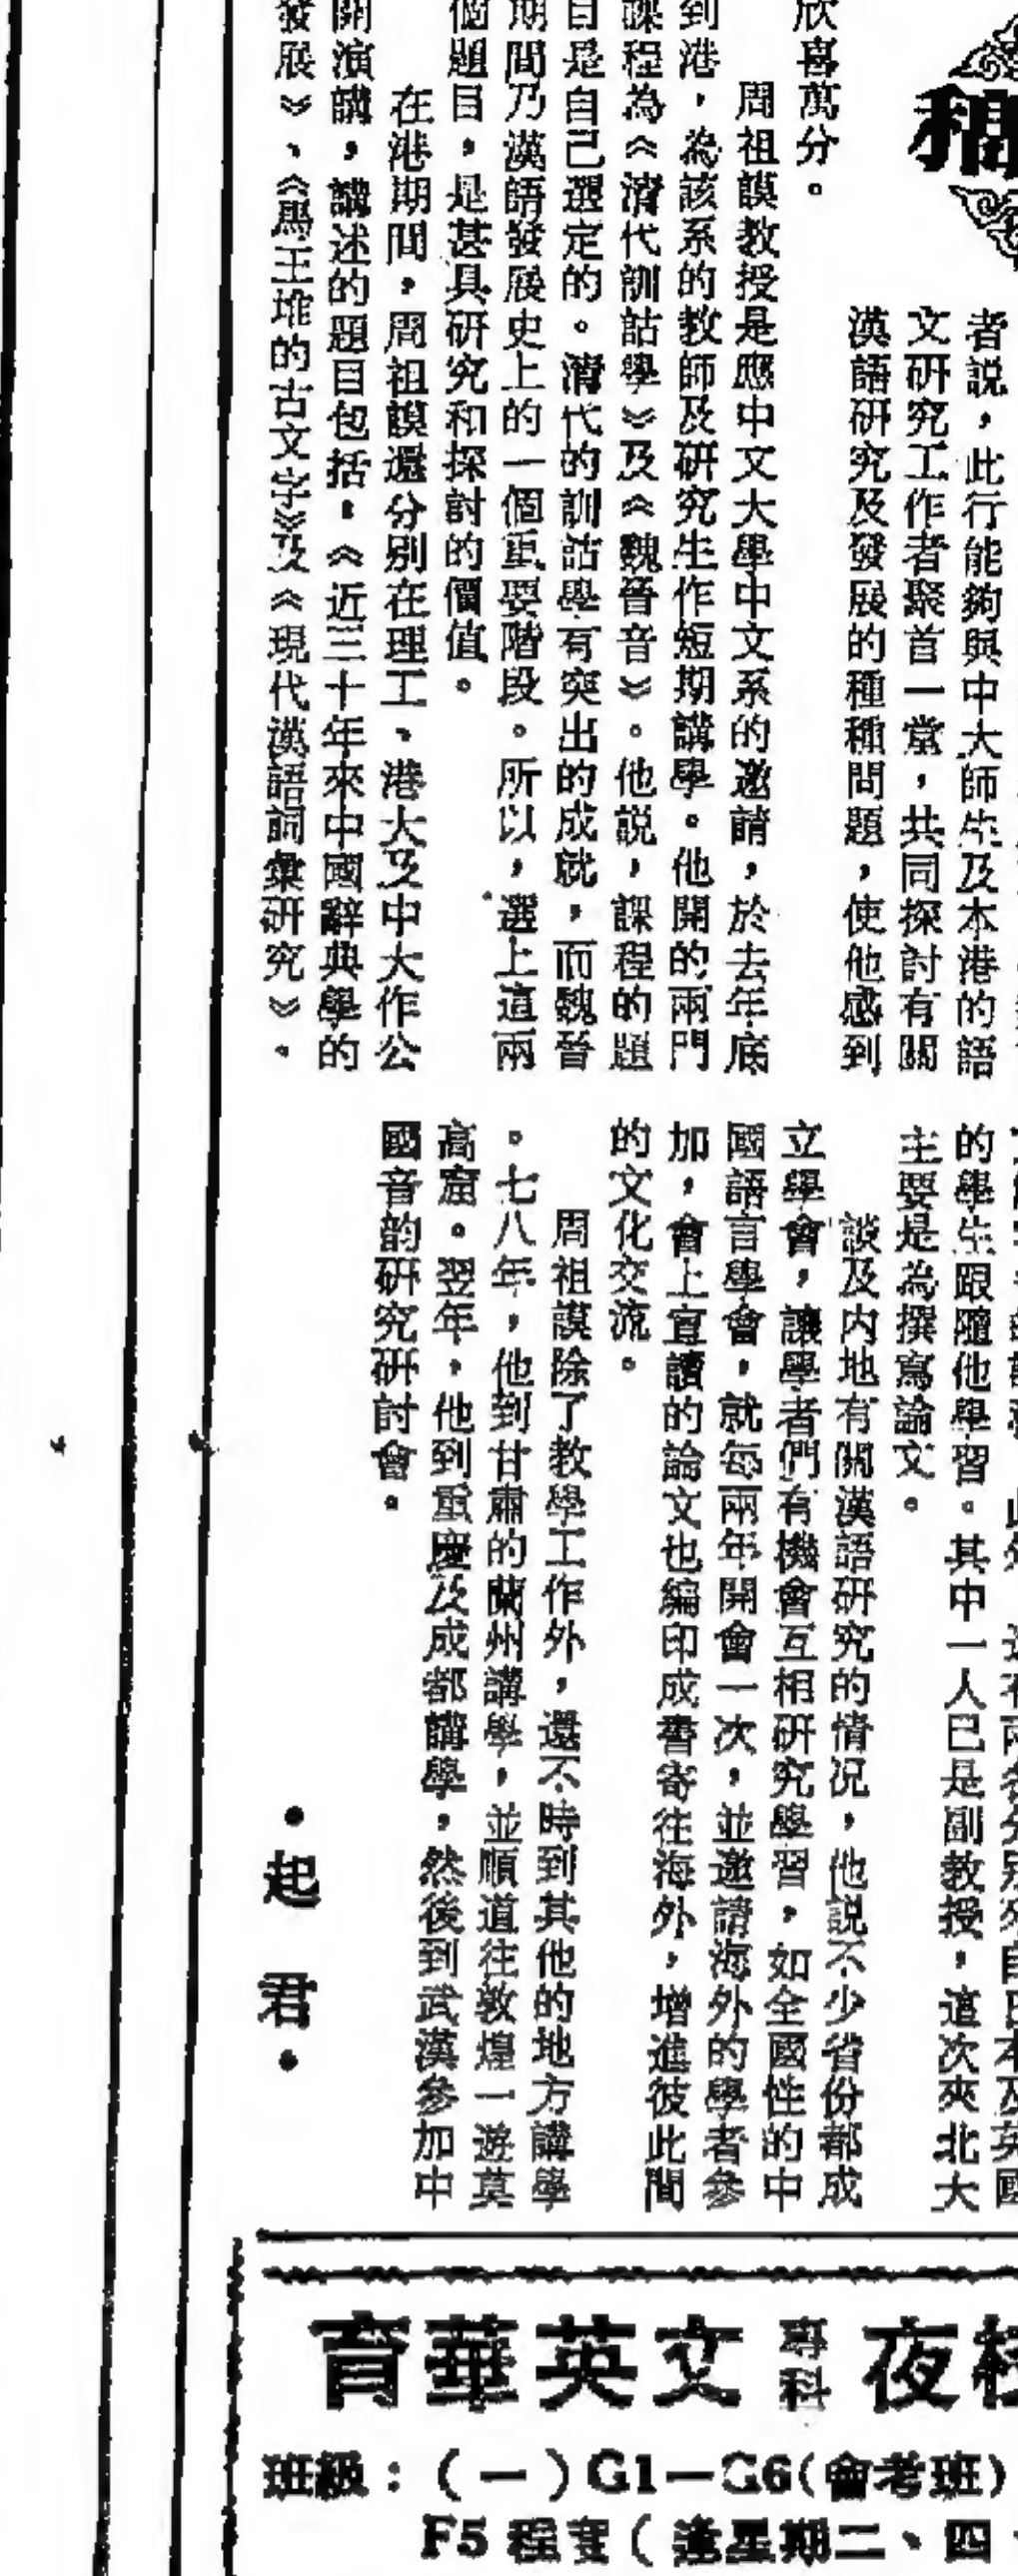 稿
者說，此行能夠與中大師生及本港的語
文研究工作者聚首一堂，共同探討有關
漢語研究及發展的種種問題，使他感到
欣喜萬分。
周祖謨教授是應中文大學中文系的邀請，於去年底
到港，為該系的教師及研究生作短期講學。他開的兩門
課程為《清代訓詁學》及《魏晉音》。他説，課程的題
目是自己選定的。清代的訓詁學有突出的成就，而魏晉
期間乃漢語發展史上的一個重要階段。所以，選上這兩
個題目，是甚具研究和探討的價值。
在港期間，周祖謨還分別在理工、港大及中大作公
開演講，講述的題目包括：《近三十年來中國辭典學的
發展》、《馬王堆的古文字》及《現代漢語詞彙研究》。
兩名分別來自日本及英國
的學生跟隨他學習。其中一人已是副教授，這次來北大
主要是為撰寫論文。
談及內地有關漢語研究的情況，他説不少省份都成
立學會，讓學者們有機會互相研究學習，如全國性的中
國語言學會，就每兩年開會一次，並邀請海外的學者參
加，會上宣讀的論文也編印成書寄往海外，增進彼此間
的文化交流。
周祖謨除了教學工作外，還不時到其他的地方講學
。七八年，他到甘肅的蘭州講學，並順道往敦煌一遊莫
高窟。翌年，他到重慶及成都講學，然後到武漢參加中
國音韵研究研討會。
•起　君•
育華英文專科夜校
班級：（一）G1—G6（會考班）
F5程度（逢星期二、四